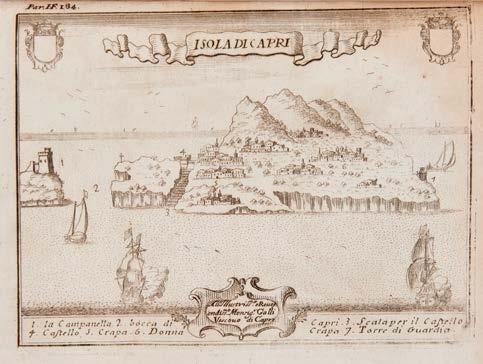 Par. II. F. 184.
ISOLA DI CAPRI
2
3
All Illustriss. e Reue
rendiss. Monsig. Galli
Vescouo di Capri
1. la Campanella 2. bocca di Capri 3. Scala per il Castello
4. Castello 5. Crapa 6. Donna Crapa 7. Torre di Guardia